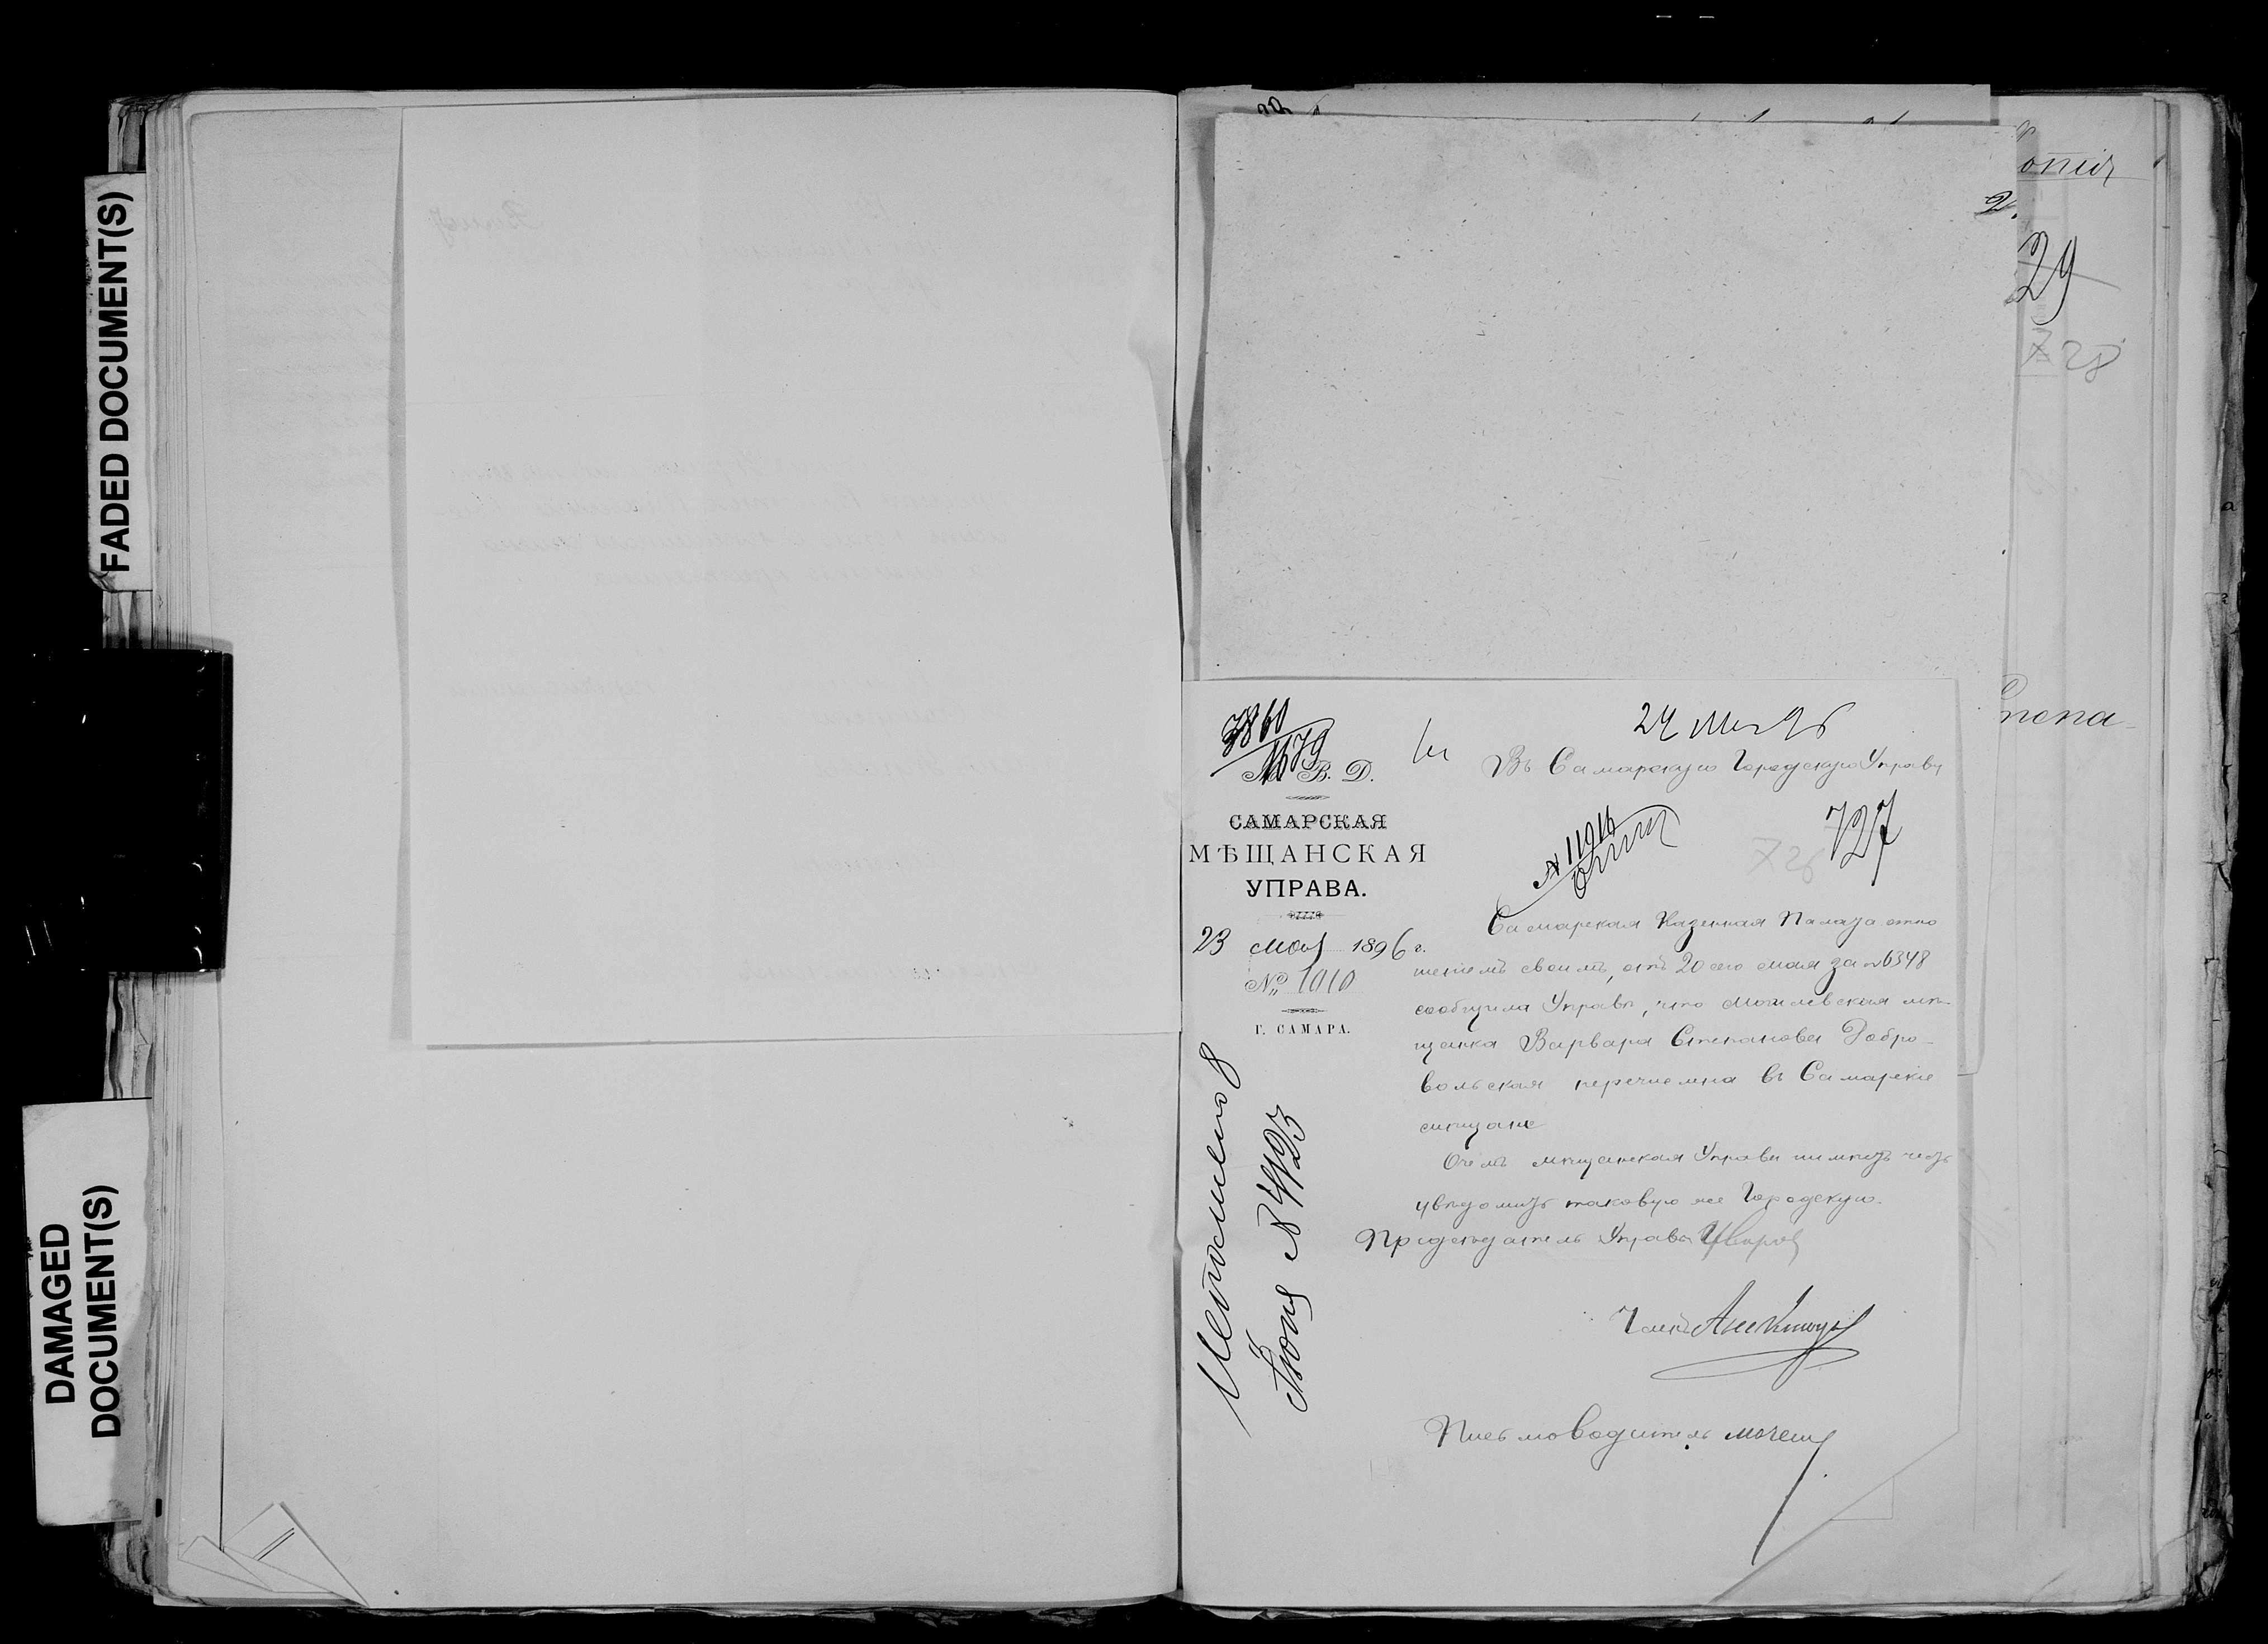 FADED DOCUMENT(S)
DAMAGED
DOCUMENT(S)
29
728
3860
1679
М. В. Д.
САМАРСКАЯ
МѢЩАНСКАЯ
УПРАВА.
23 мая 1896 г.
№ 1010
Г. САМАРА.
Исполнено 8
Іюня № 4423
24 Мая 96
Въ Самарскую Городскую Управу
№ 11016
727
726
Самарская Казенная Палата отно
шеніемъ своимъ, отъ 20 сего мая за № 6348
сообщила Управѣ, что Могилевская мѣ-
щанка Варвара Степанова Добро-
вольская перечислена въ Самарскіе
мѣщане
О чемъ мѣщанская Управа имѣетъ честь
увѣдомить таковую же Городскую.
Предсѣдатель Управы
Членъ
Письмоводитель